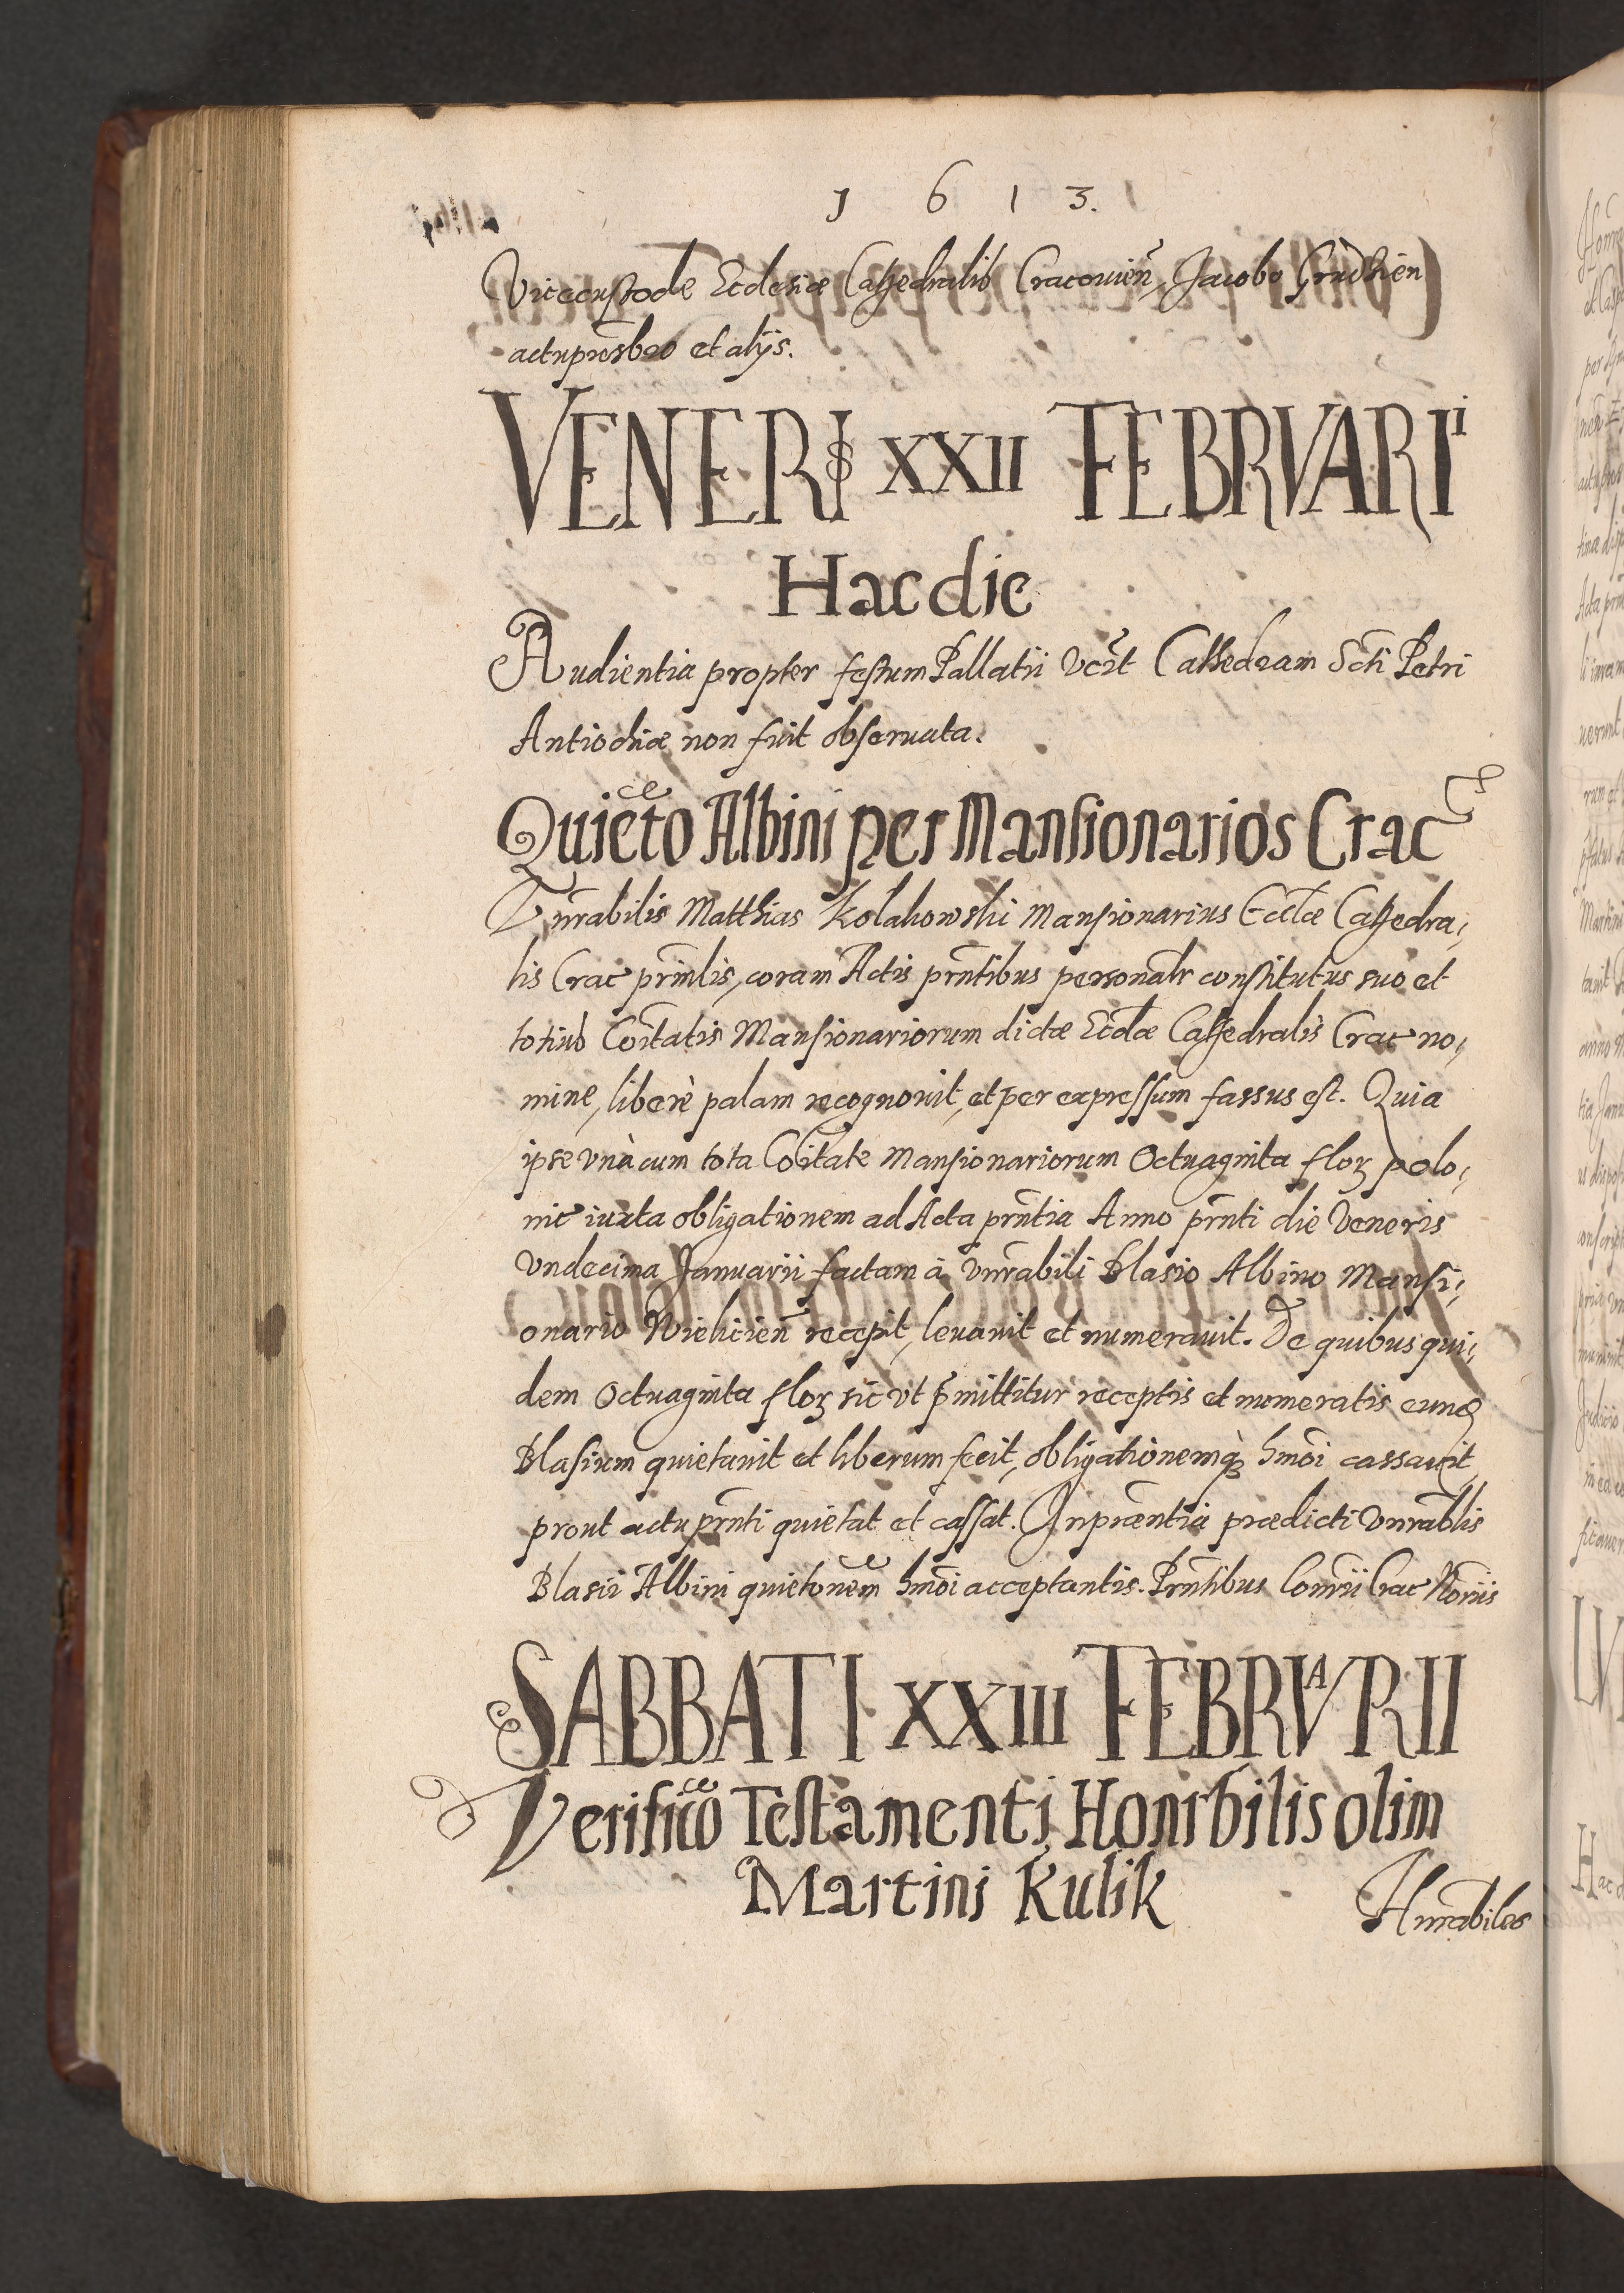 1613.
Vicecustode Ecclesiæ Cathedralis Cracovień, Jacobo Grudzień
actuprēsbro et alijs.
VENERIS XXII FEBRVARIi
Hac die
Audientia propter festum Pallatii vērt Cathedram Scti Petri
Antiochiæ non fuit obseruata.
Quietō Albini per Mansionarios Crac
Vnrabilis Matthias Kolakowski Mansionarius Ecclæ Cathedra¡
lis Crac prīnlis, coram Actis prn̄tibus personalr constitutus suo et
totius Cōitatis Mansionariorum dictæ Ecclæ Cathedralis Crac no¡
mine, liberè palam recognouit, et per expressum fassus est. Quia
ipse vnà cum tota Cōitate Mansionariorum Octuaginta floꝫ polo¡
nic iuxta obligationem ad Acta prn̄tia Anno prn̄ti die Veneris
Vndecima Januarii factam à Vnrabili Blasio Albino Mansi¡
onario Wielicień recepit, leuauit et numerauit. De quibus qui¡
dem Octuaginta floꝫ sic vt p̄mittitur receptis et numeratis eund
Blasium quietauit et liberum fecit, obligationemqꝫ hmōi cassauit,
prout actu prn̄ti quietat et cassat. In præntia prædicti Vnrablis
Blasii Albini quietonem hmōi acceptantis. Prn̄tibus Consrii Crac Noriis
SABBATI XXIII FEBRVARII
Verificō Testamenti Honrbilis olim
Martini Kulik
Hnrabiles